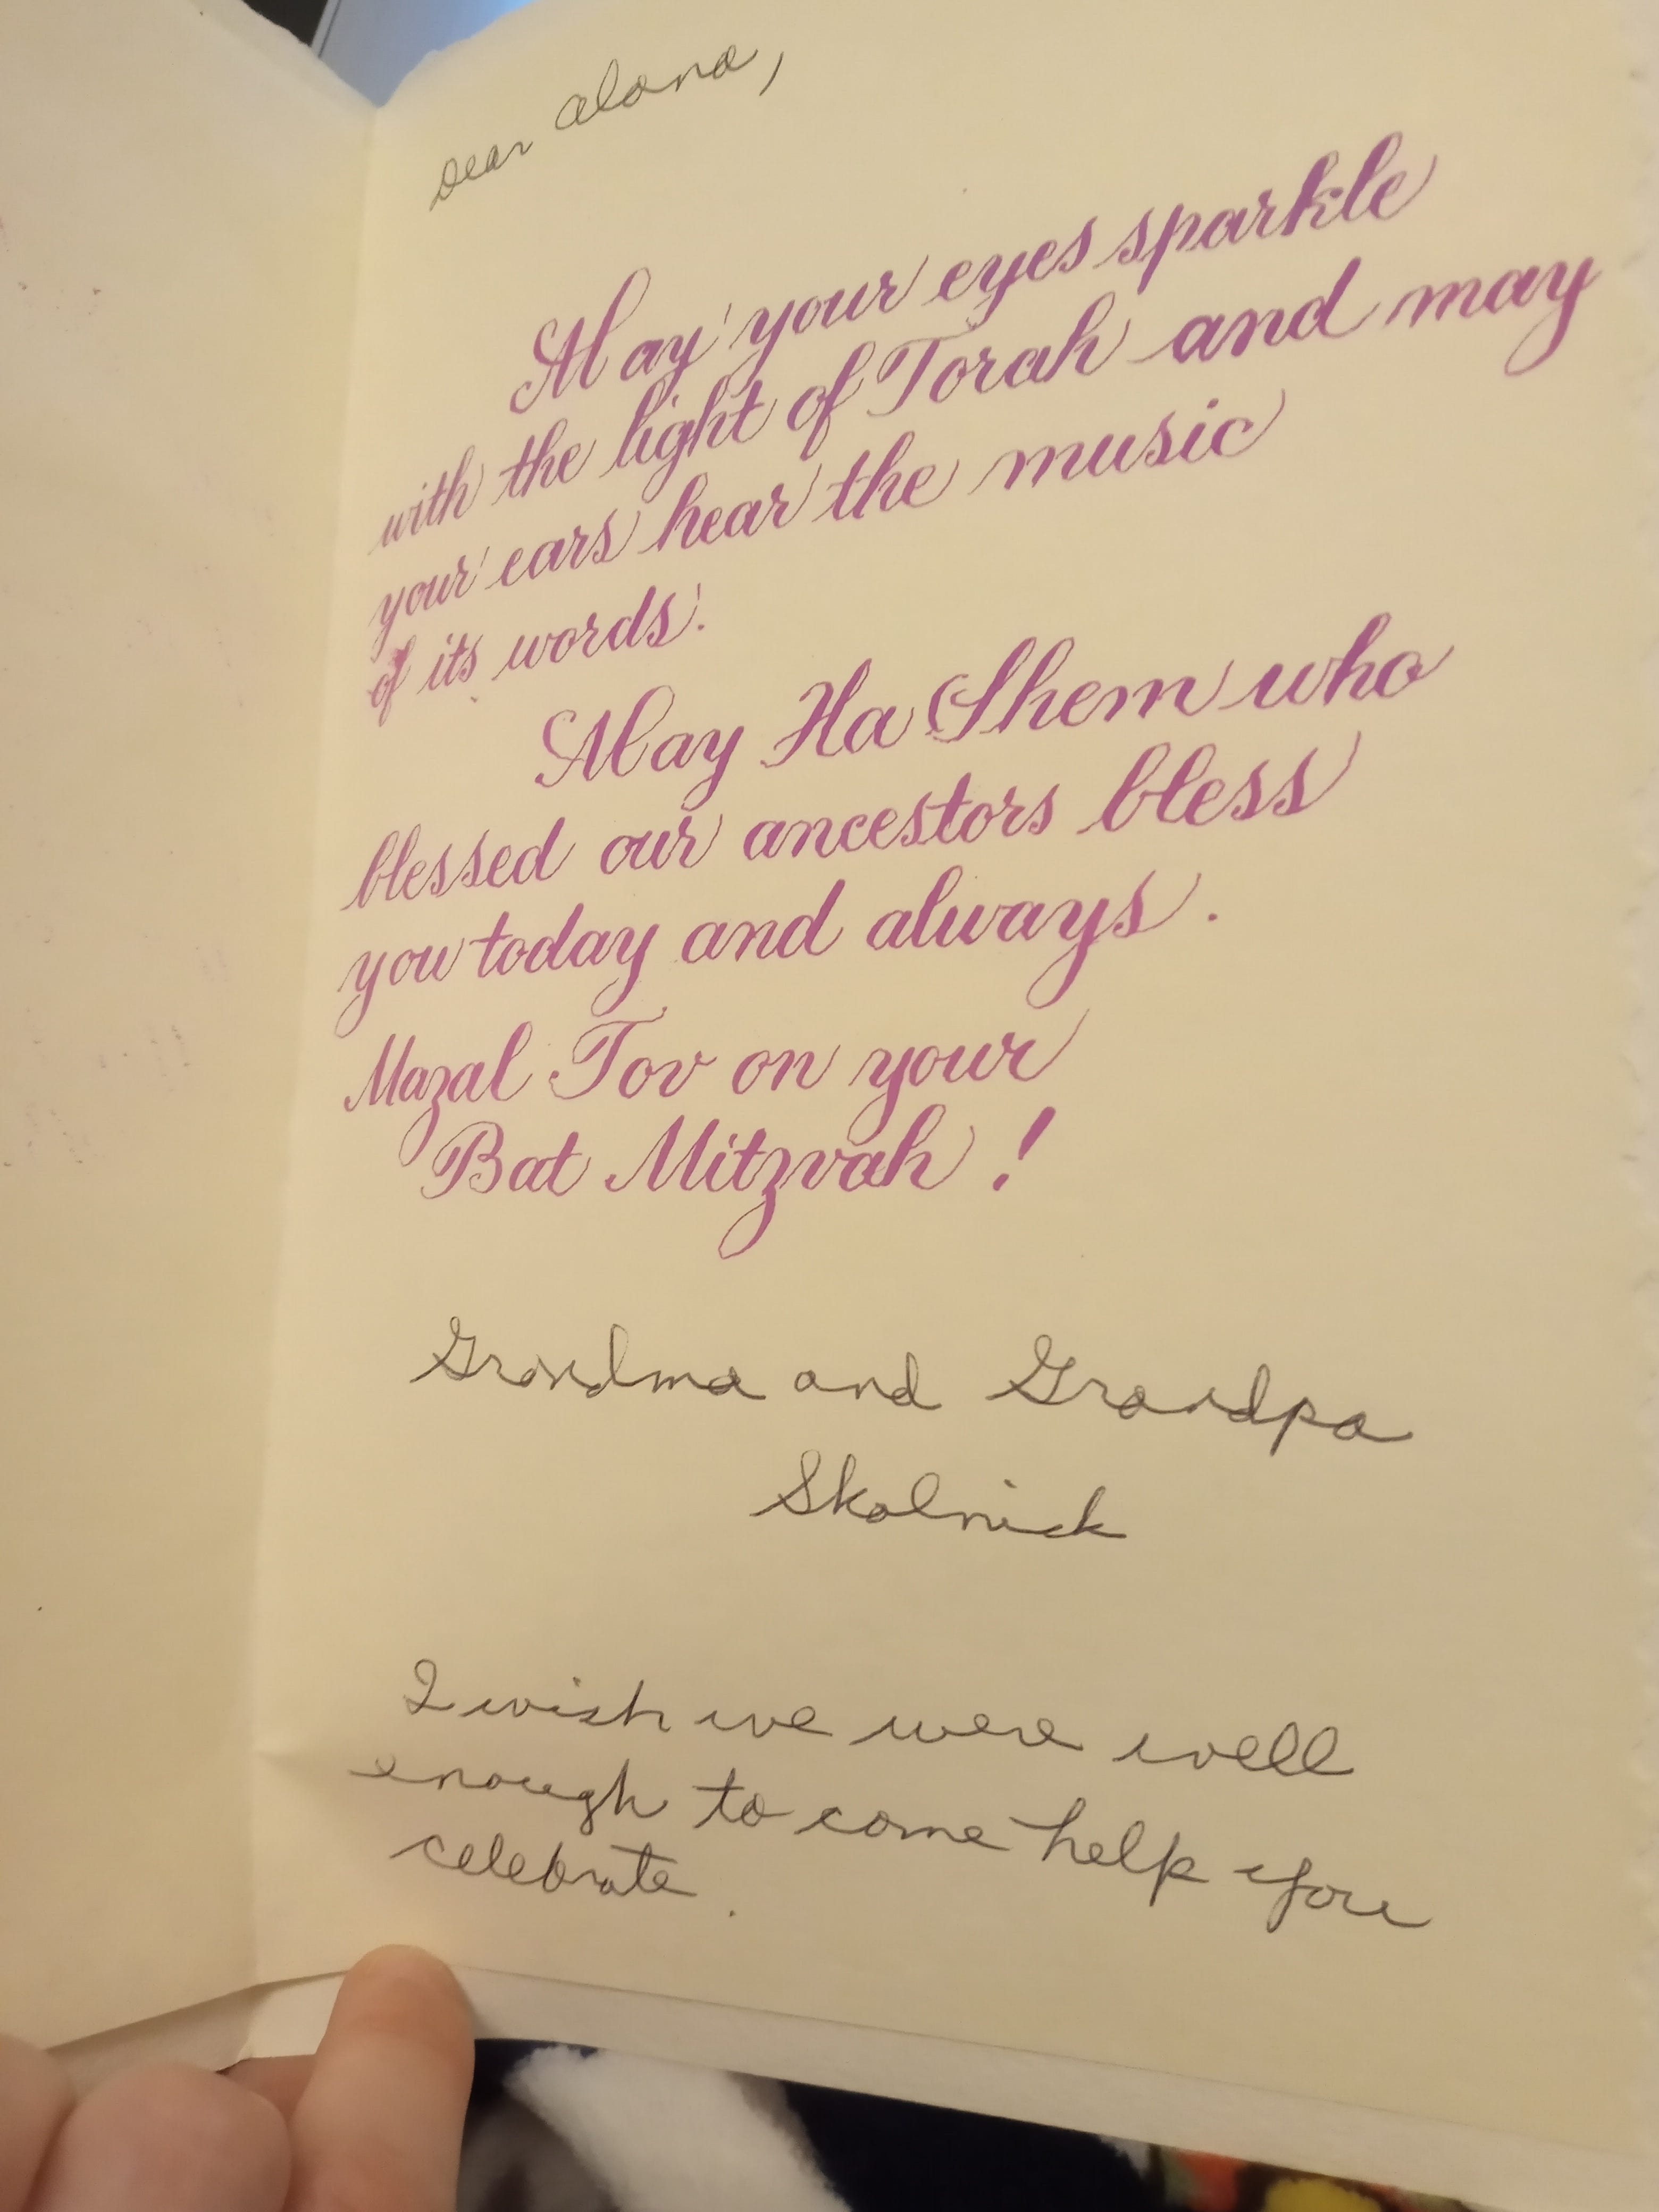 Dear Alana,
May your eyes sparkle
with the light of Torah and may
your ears hear the music
of its words.
May Ha Shem who
blessed our ancestors bless
you today and always.
Mazal Tov on your
Bat Mitzvah!
Grandma and Grandpa
Skolnick
I wish we were well
enough to come help you
celebrate.